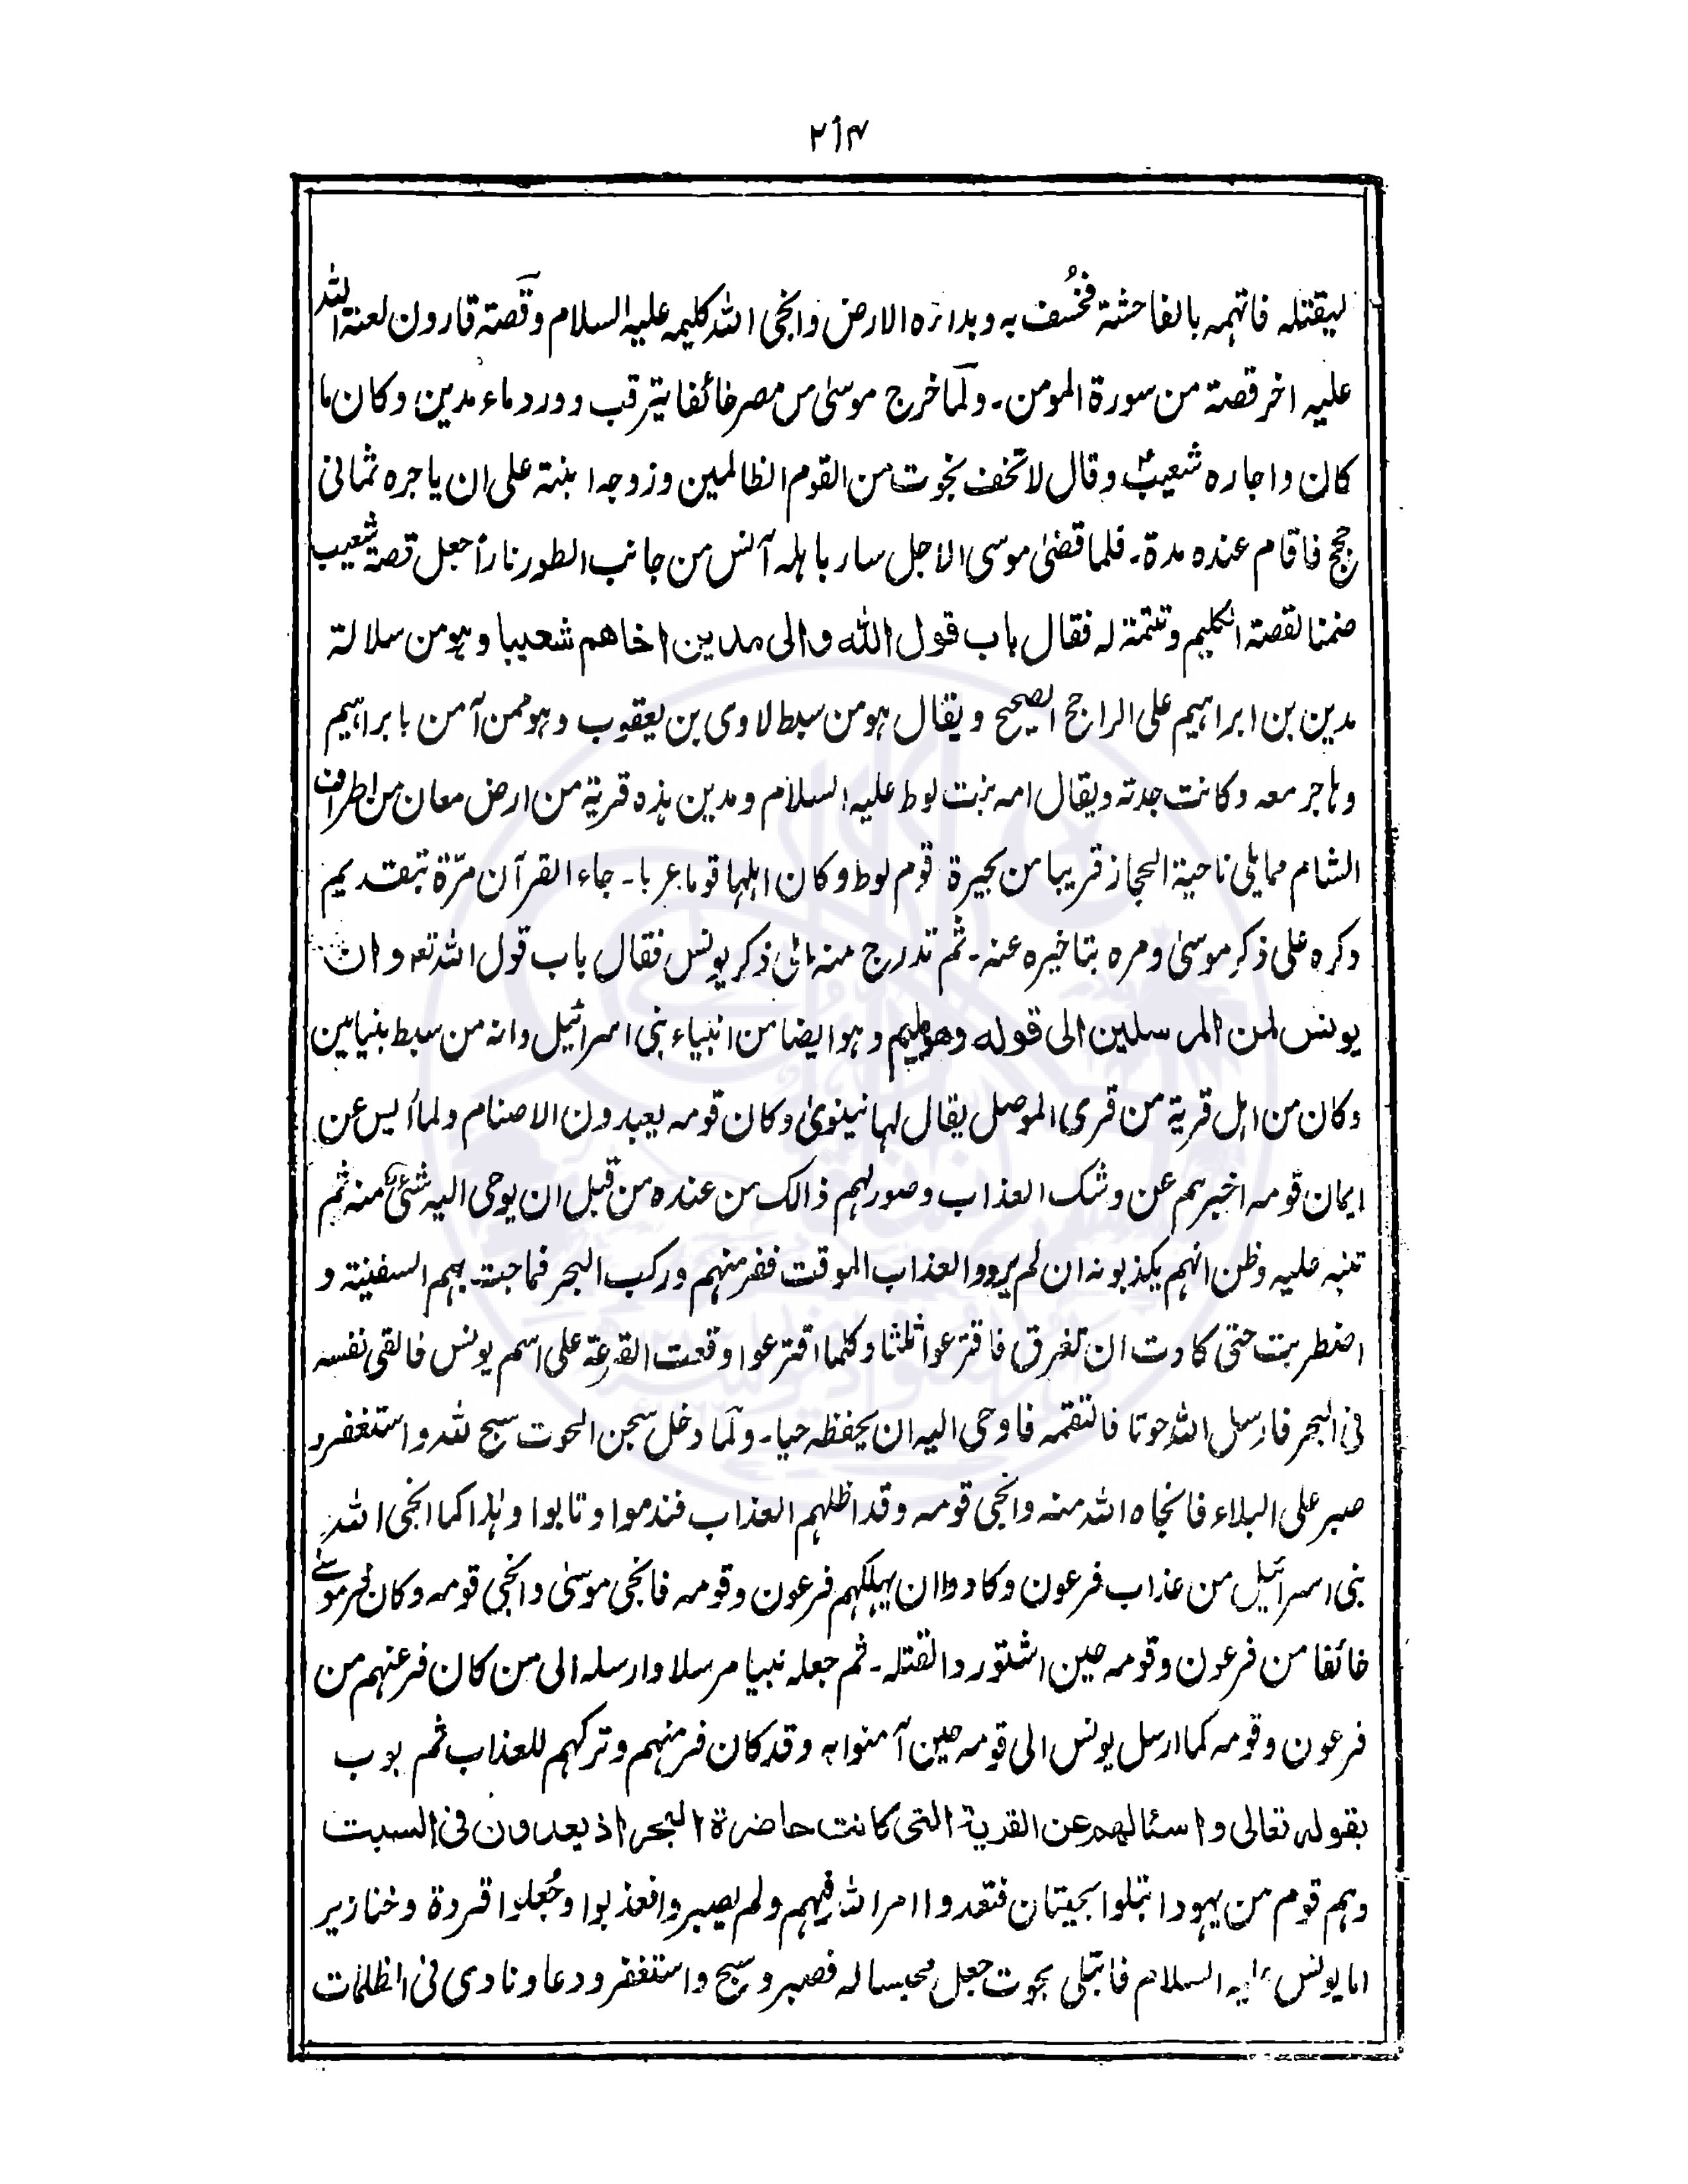 ۲۱۴
ليقتله فاتهمه بالفاحشة فخُسف به وبداره الارض وانجى الله كليمه عليه السلام وقصة قارون لعنة الله
عليه اخر قصته من سورة المومن۔ ولَمّا خرج موسىٰ من مصر خائفا يترقب وورد ماء مدين وكان ما
كان واجاره شعيبؑ وقال لا تخف نجوت من القوم الظالمين وزوجه ابنته على ان ياجره ثمانى
حجج فاقام عنده مدة۔ فلما قضىٰ موسى الاجل سار باہلہ آنس من جانب الطور ناراً جعل قصة شعيب
ضمنا لقصة الكليم وتتمة له فقال باب قول الله والى مدين اخاهم شعيبا وہو من سلالة
مدين بن ابراہيم على الراجح الصحيح ويقال ہو من سبط لاوى بن يعقوب وہو ممن آمن بابراہيم
وہاجر معہ وكانت جدته ويقال امه بنت لوط عليه السلام ومدين ہذه قرية من ارض معان من اطراف
الشام مما يلى ناحية الحجاز قريبا من بحيرة قوم لوط وكان اہلہا قوما عربا۔ جاء القرآن مرّة بتقديم
ذكره على ذكر موسىٰ ومره بتاخيره عنه۔ ثم تدرج منه الى ذكر يونس فقال باب قول الله تعہ وان
يونس لمن المرسلين الى قوله وهو مليم وہو ايضا من انبياء بنى اسرائيل وانه من سبط بنيامين
وكان من اہل قرية من قرى الموصل يقال لہا نينوىٰ وكان قومه يعبدون الاصنام ولما أيس عن
ايمان قومه اخبرہم عن وشك العذاب وصور لہم ذالك من عنده من قبل ان يوحى اليه شئ منه ثم
تنبه عليه وظن انہم يكذبونه ان لم يروا العذاب الموقت ففر منہم وركب البحر فماجت بہم السفينة و
اضطربت حتى كادت ان تغرق فاقترعوا ثلثا وكلما اقترعوا وقعت القرعة على اسم يونس فالقى نفسه
فى البحر فارسل الله حوتا فالتقمه فاوحى اليه ان يحفظه حيا۔ ولَمّا دخل سجن الحوت سبح لله واستغفر و
صبر على البلاء فانجاه الله منه وانجى قومه وقد اظلہم العذاب فندموا وتابوا وہٰذا كما انجى الله
بنى اسرائيل من عذاب فرعون وكادوا ان يہلكہم فرعون وقومه فانجى موسىٰ وانجى قومه وكان فر موسىٰ
خائفا من فرعون وقومه حين اشتوروا لقتله۔ ثم جعله نبيا مرسلا وارسله الى من كان فر عنہم من
فرعون وقومه كما ارسل يونس الى قومه حين آمنوا به وقد كان فر منہم وتركہم للعذاب ثم بوب
بقوله تعالى واسئالهم عن القرية التى كانت حاضرة البحر اذ يعدون فى السبت
وہم قوم من يہود ابتلوا بحيتان فتعدوا امر الله فيہم ولم يصبروا فعذبوا وجُعلوا قردة وخنازير
اما يونس عليه السلام فابتلى بحوت جعل محبسا له فصبر وسبح واستغفر ودعا ونادى فى الظلمات